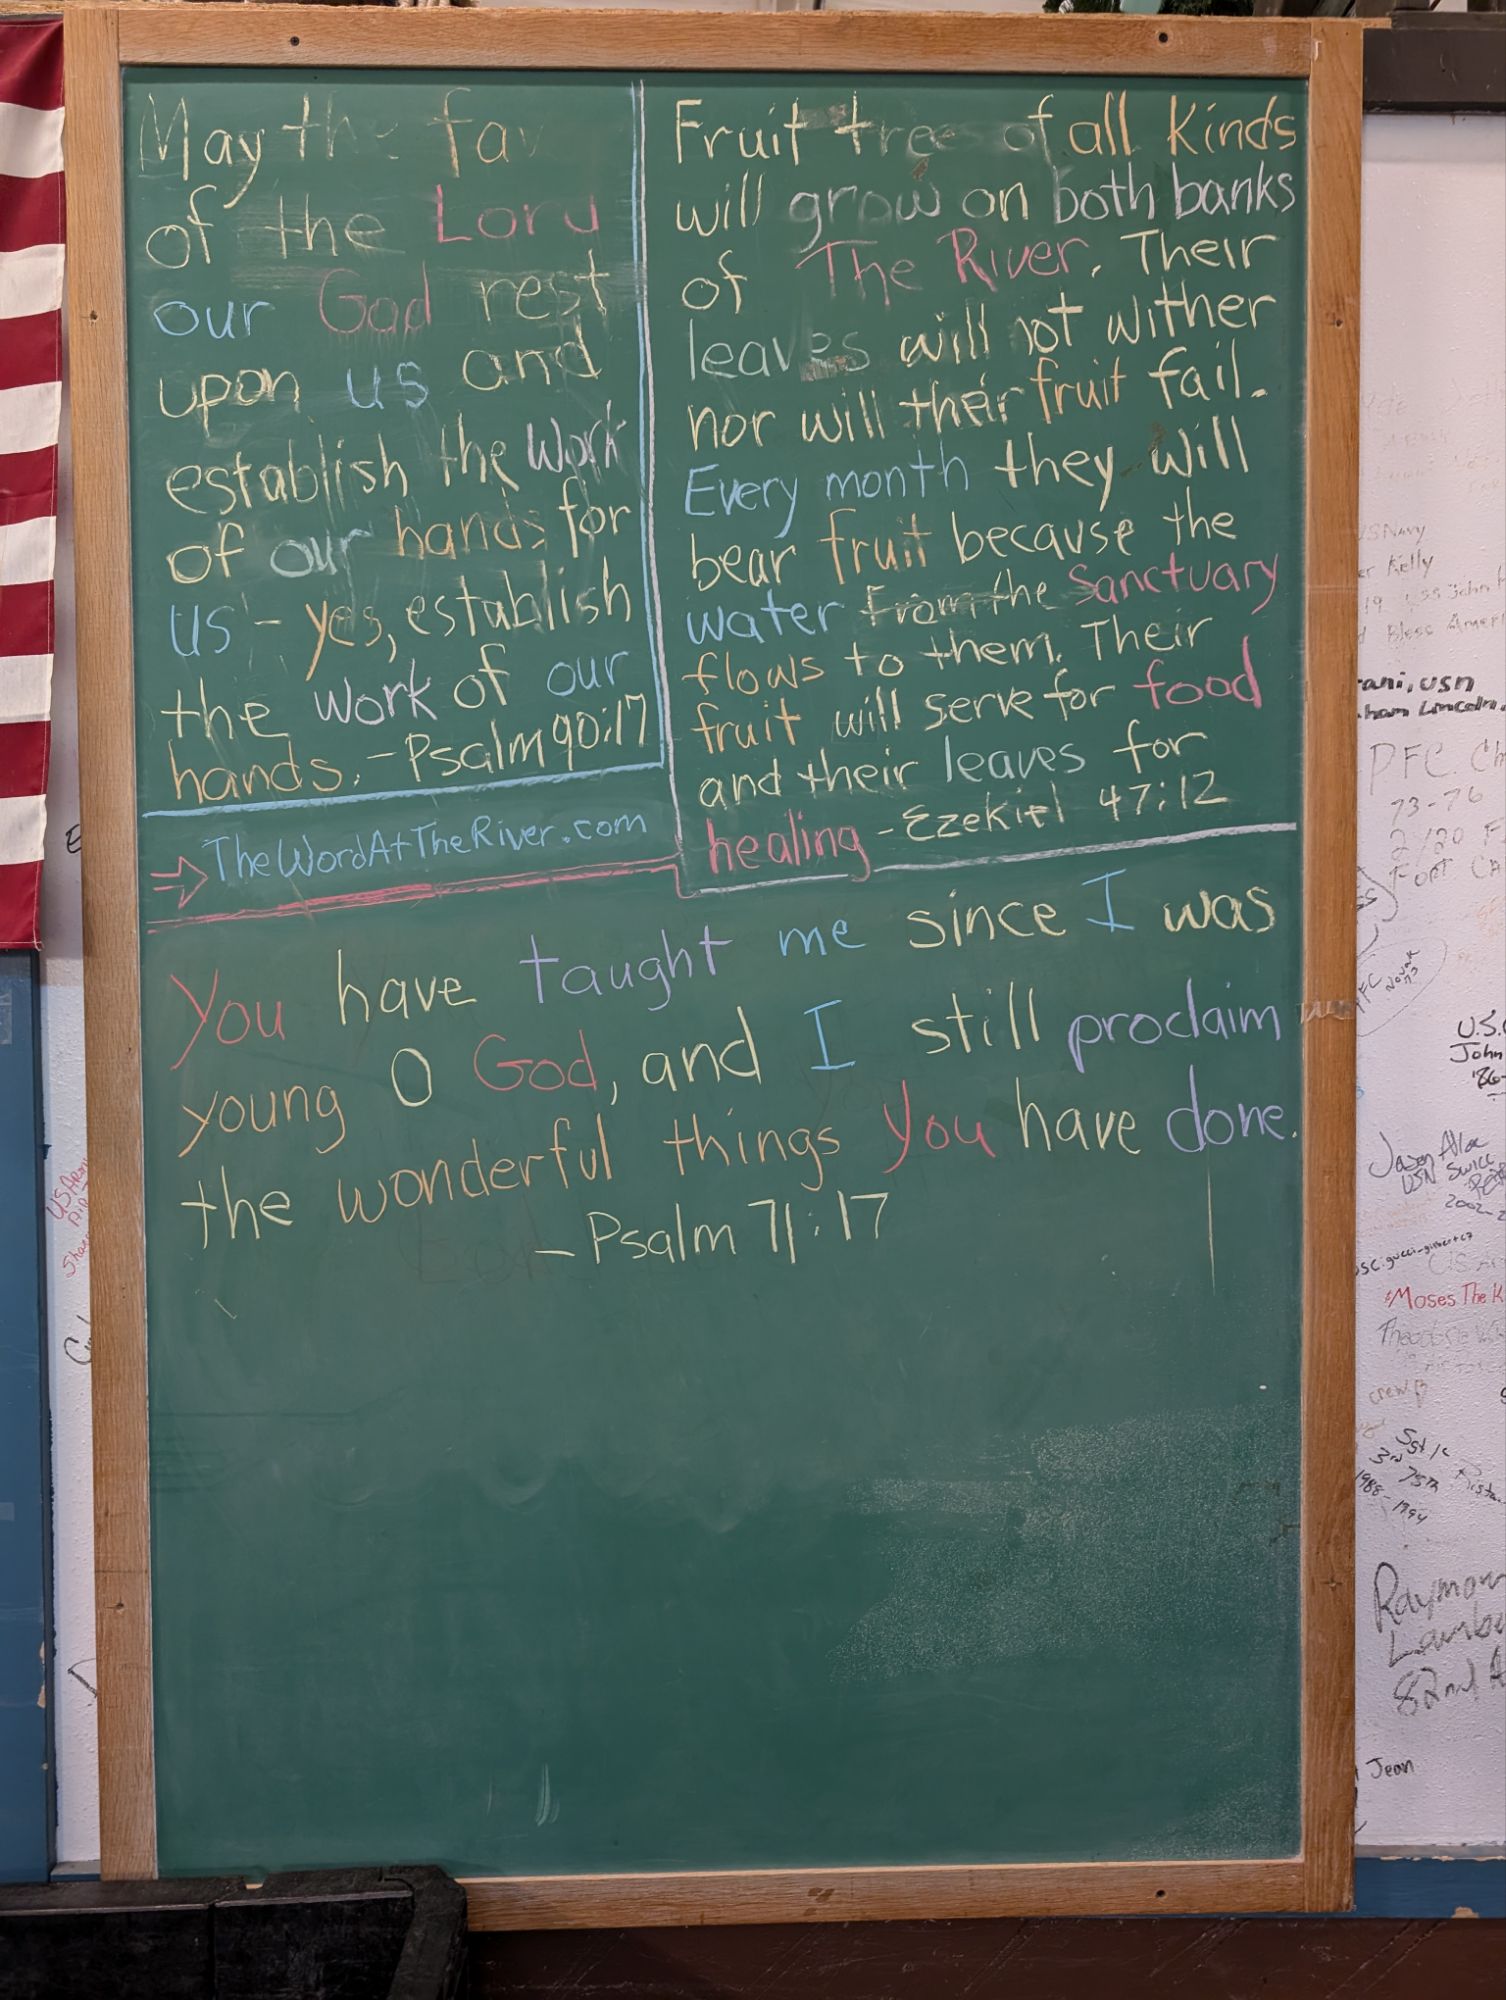 May the fav
of the Lord
our God rest
upon us and
establish the work
of our hands for
us - yes, establish
the work of our
hands. - Psalm 90:17
Fruit trees of all Kinds
will grow on both banks
of The River. Their
leaves will not wither
nor will their fruit fail.
Every month they will
bear fruit because the
water from the Sanctuary
flows to them. Their
fruit will serve for food
and their leaves for
healing - Ezekiel 47:12
TheWordAtTheRiver.com
You have taught me since I was
young O God, and I still proclaim
the wonderful things You have done.
- Psalm 71:17
Kelly
Bless Ameri
rani, USN
ham Lincoln.
PFC. Ch
73-76
2/20 F
FORT CA
PFC
U.S.
John
'86-
Jason
USN
2002-2
Moses The K
crew B
3rd 75th
1988-1994
Raymon
82nd A
Jean